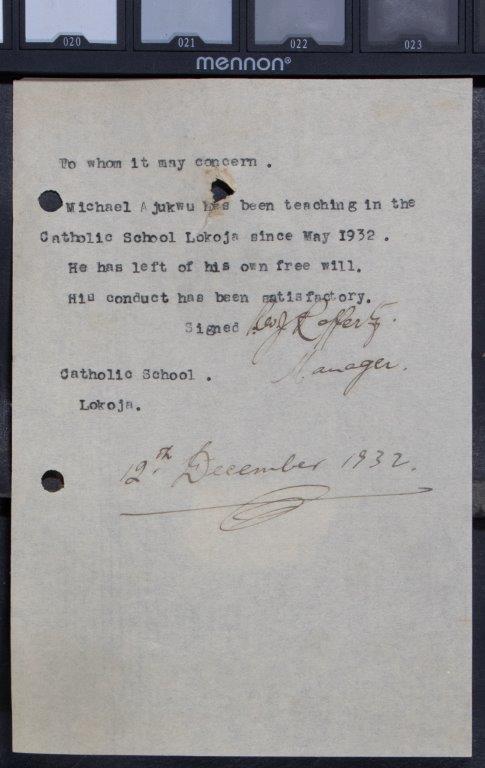 020 021 022 023
mennon®
To whom it may concern .
Michael Ajukwu has been teaching in the
Catholic School Lokoja since May 1932 .
He has left of his own free will.
His conduct has been satisfactory.
Signed
Manager.
Catholic School .
Lokoja.
12th December 1932.